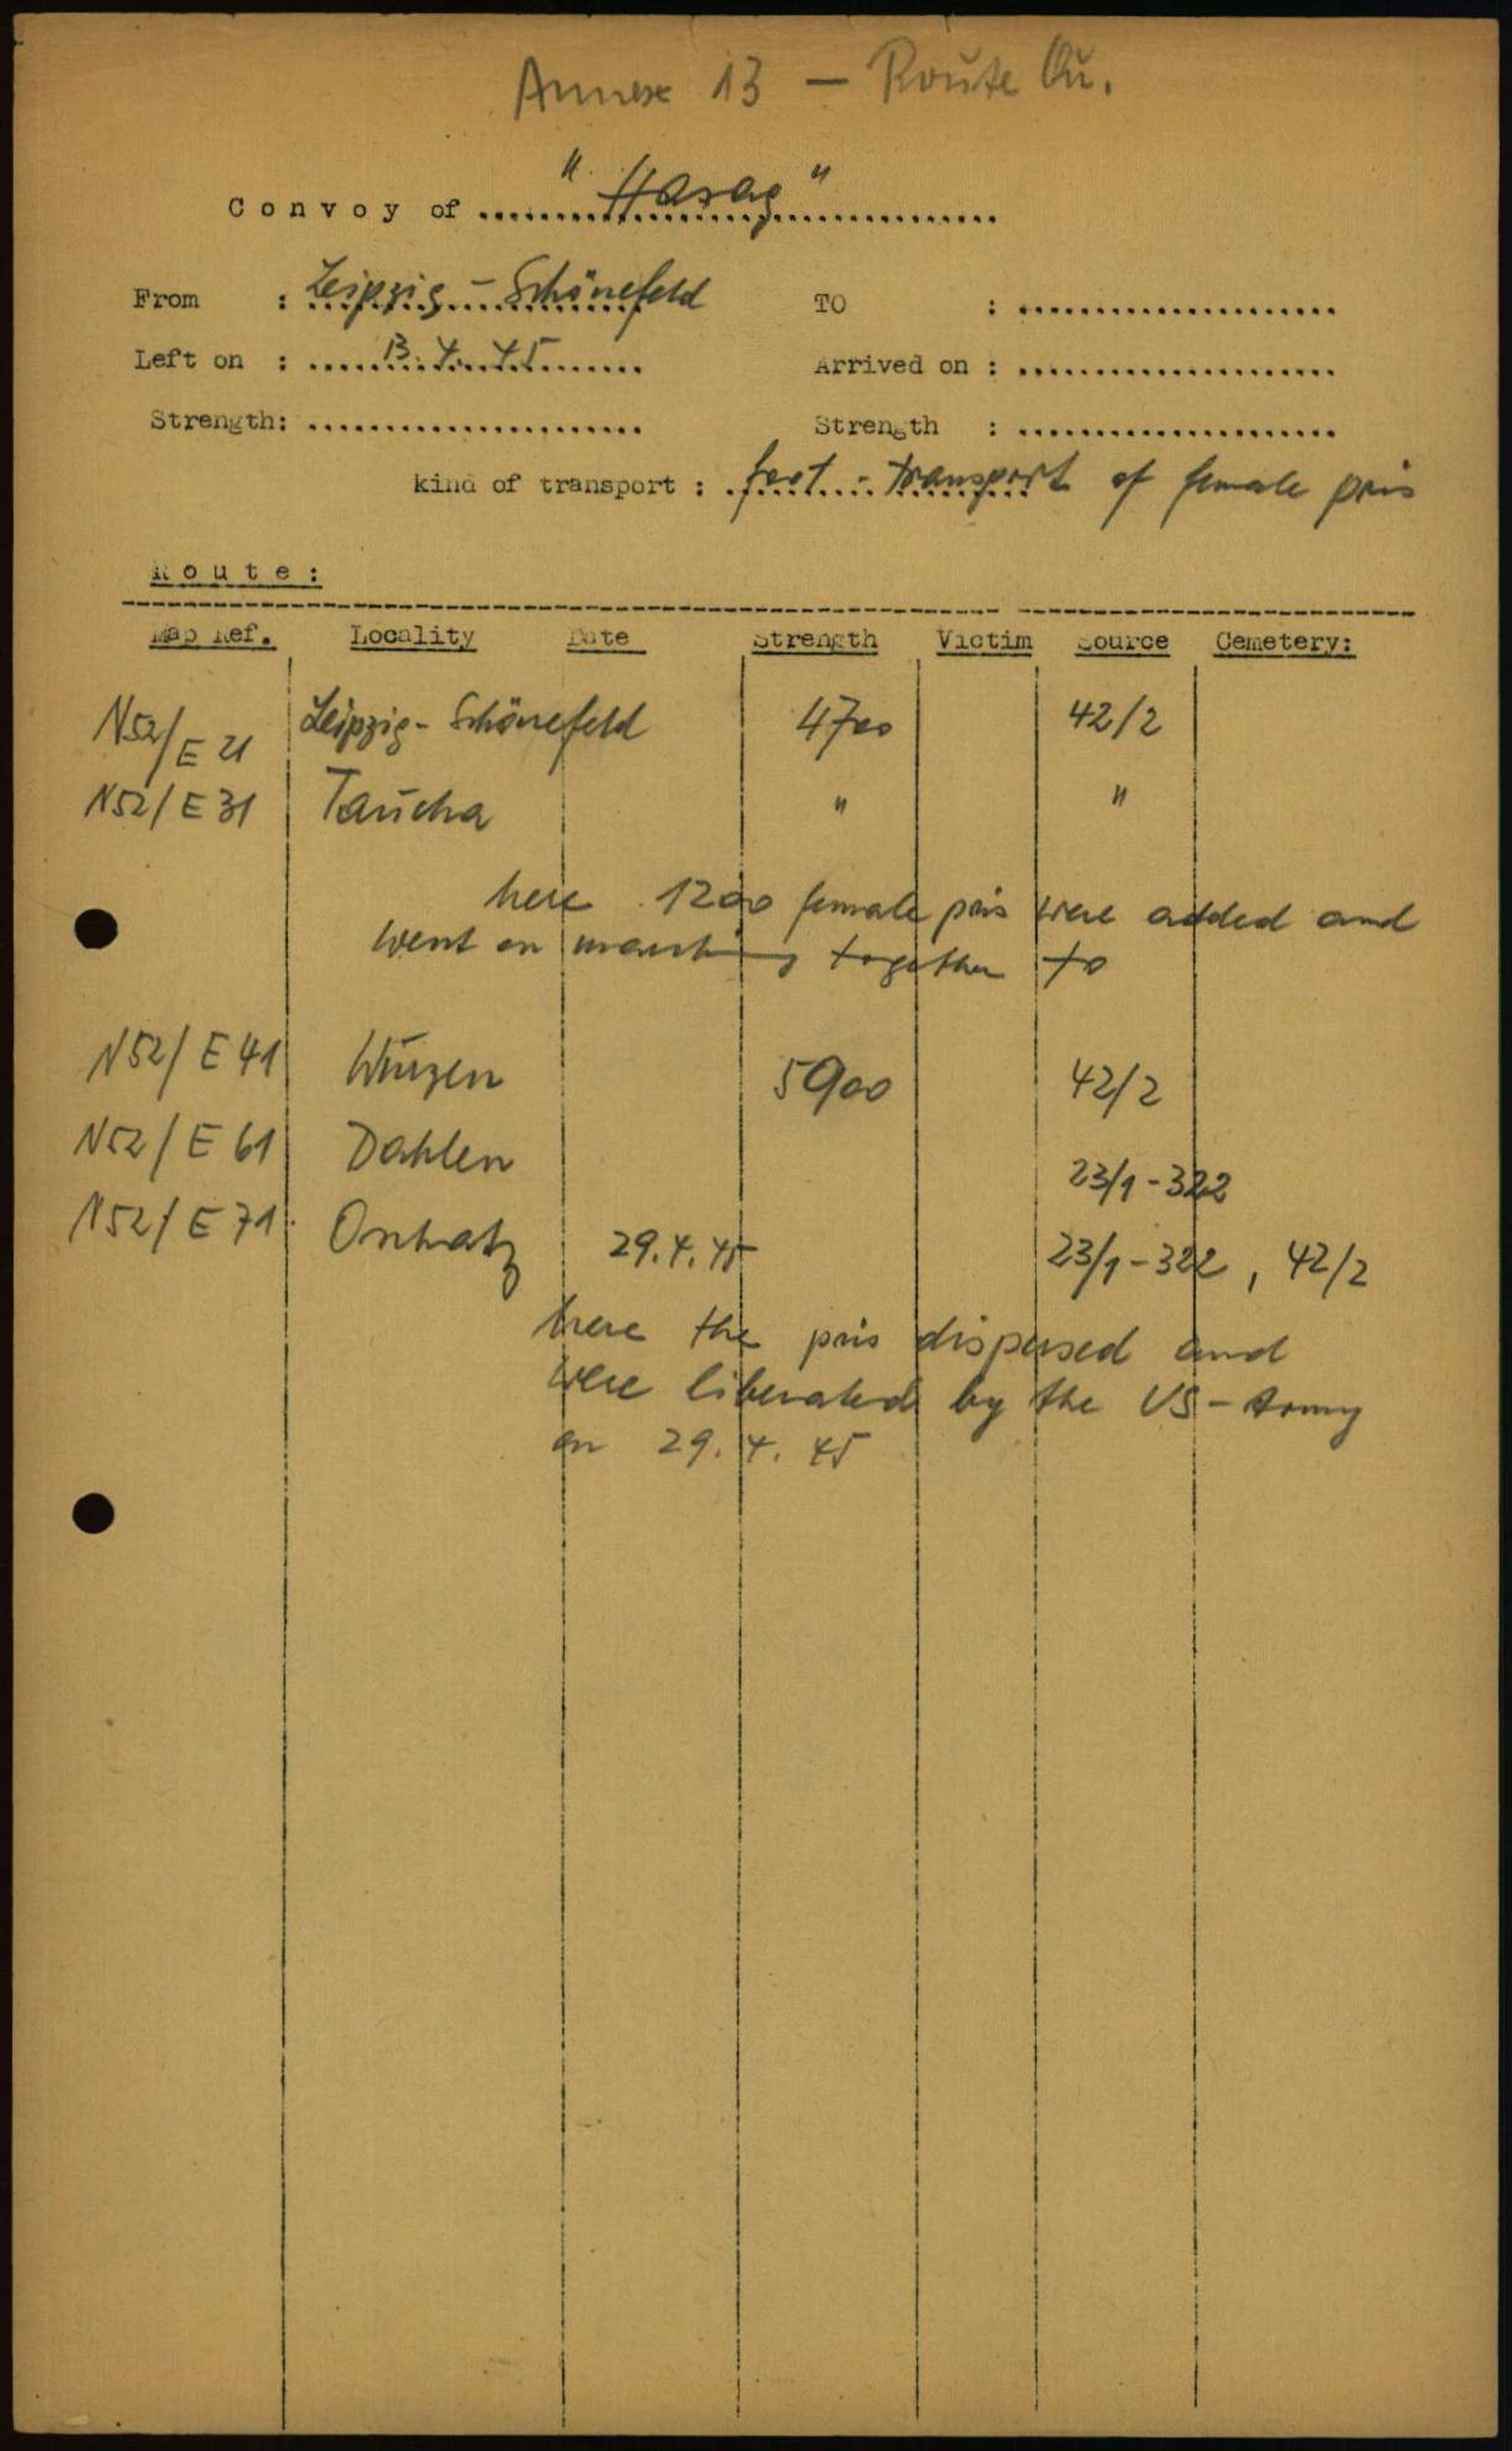 Annex 13 — Route
Convoy of "Hasag"
From : Leipzig - Schönefeld TO : .....................
Left on : 13. 4. 45 Arrived on : .....................
Strength: ...................... Strength : .....................
kind of transport : foot - transport of female pris
Route:
Map Ref. Locality Date Strength Victim Source Cemetery:
N52/E 21 Leipzig - Schönefeld 4700 42/2
N52/E 31 Taucha " "
here 1200 female pris were added and
went on marching together to
N52/E 41 Wurzen 5900 42/2
N52/E 61 Dahlen 23/1-322
N52/E 71 29.4.45 23/1-322, 42/2
here the pris dispersed and
were liberated by the US-Army
on 29.4.45